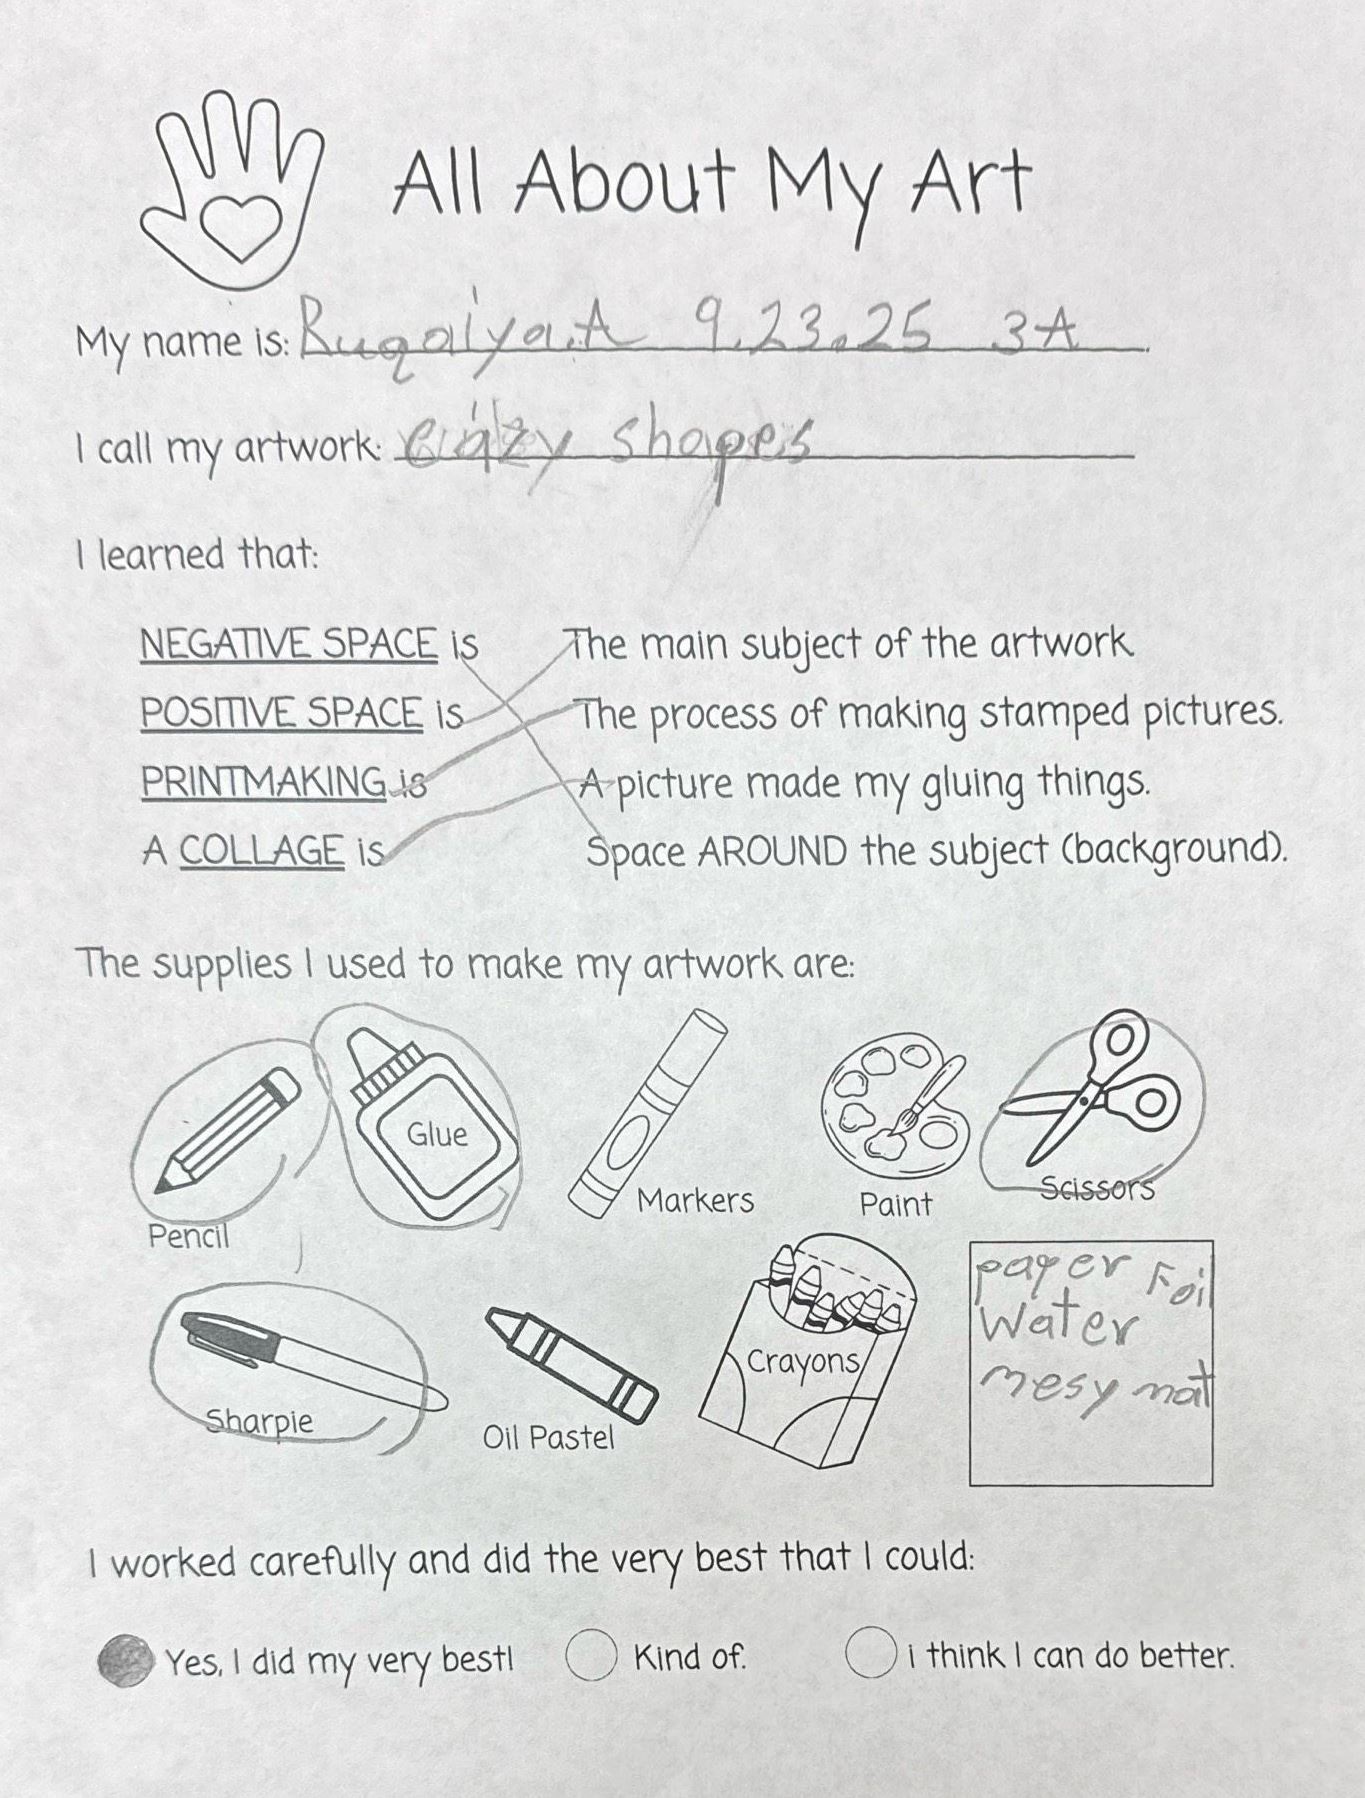 All About My Art
My name is: Ruqaiya.A 9.23.25 3A
I call my artwork: crazy shapes
I learned that:
NEGATIVE SPACE is The main subject of the artwork
POSITIVE SPACE is The process of making stamped pictures.
PRINTMAKING is A picture made my gluing things.
A COLLAGE is Space AROUND the subject (background).
The supplies I used to make my artwork are:
Glue
Pencil
Markers
Paint
Scissors
Sharpie
Oil Pastel
Crayons
paper Foil
Water
mesy mat
I worked carefully and did the very best that I could:
Yes, I did my very best! Kind of. i think I can do better.